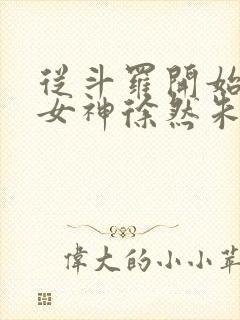 從斗羅開始
女神徐然朱
偉大的小小草